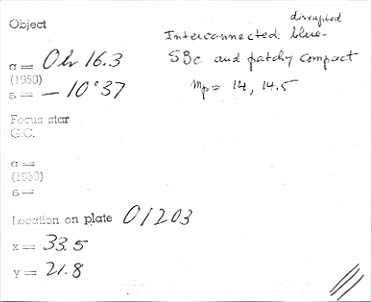 Object
disrupted
Interconnected blue-
SBc and patchy compact
mp = 14, 14.5
α = 0h 16.3
(1950)
δ = - 10°37
Focus star
G.C.
α =
(1950)
δ =
Location on plate 01203
x = 33.5
y = 21.8